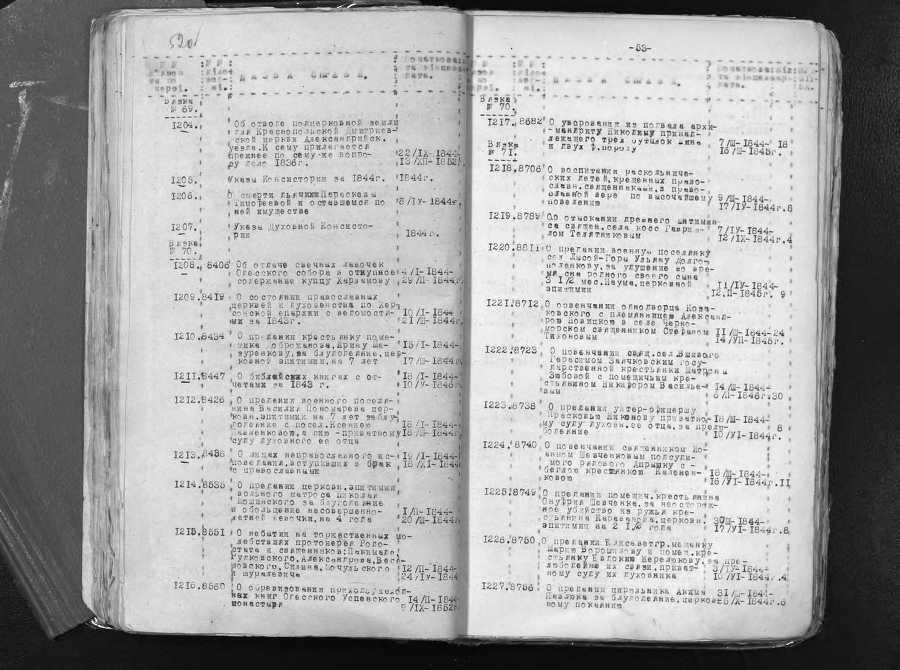 520/
№ №
№ №
НАЗВА СПРАВИ.
Вязка
№ 69.
1204.
Об отводе подцерковной земли
для Краснопольской Дмитриев-
ской церкви Александрийск.
уезда. К сему прилагается
прежнее по сему-же вопро-
су дело 1836г.
22/IX-1844-
13/XII-1852г.
1205.
Указы Консистории за 1844г.
1844г.
1206.
О смерти дьячихи Параскевы
и оставшемся по
ней имуществе
8/IV-1844г.
1207.
Указы Духовной Консисто-
рии
1844г.
Вязка
№ 70.
1208. 8406
Об отдаче свечных лавочек
Одесского собора в откупное
содержание купцу Харламову
4/I-1844-
29/II-1844г.
1209. 8419
О состоянии православных
церквей и духовенства по Хер-
сонской епархии с ведомостя-
ми за 1843г.
10/I-1844-
21/III-1844г.
1210. 8434
О предании крестьянку поме-
щика Доброжанова, Ирину Ма-
зуренкову, за блудодеяние, цер-
ковной эпитимии, на 7 лет
15/I-1844-
17/III-1844г.
1211. 8447
О библейских книгах с от-
четами за 1843 г.
18/I-1844-
10/V-1845г.
1212. 8426
О предании военного поселя-
нина Василия Пономарева цер-
ковн. эпитимии на 7 лет за блу-
додеяние с посел. Ксениею
Павленковою, а ею -приватному
суду духовного ее отца
13/I-1844-
18/III-1844г.
1213. 8436
О лицах неправославного ис-
поведания, вступивших в брак
с православными
19/I-1844-
18/XI-1844г.
1214. 8535
О предании церковн. эпитимии,
вольного матроса Николая
за блудодеяние
и обольщение несовершенно-
летней девочки, на 4 года
1/II-1844-
20/III-1844г.
1215. 8551
О небытии на торжественных мо-
лебствиях протоиерея Родо-
стата и священников:
Кулковского, Александрова, Бесе-
довского, Силина, Кочульского
и Журалевича
12/II-1844-
24/IV-1844
1216. 8560
О
ных книг Одесского Успенского
монастыря
14/II-1844-
9/IX-1852г.
-53-
НАЗВА СПРАВИ.
Вязка
№ 70.
1217. 8682
О уворовании из подвала архи-
мандриту Николиму принад-
лежащего трех бутылок вина
и двух ф. пороху
7/III-1844-
16/III-1845г.
18
Вязка
№ 71.
1218. 8706
О воспитании раскольниче-
ских детей, крещенных право-
славн. священниками, в право-
славной вере по высочайшему
повелению
9/III-1844-
17/IV-1844г. 8
1219. 8789
Об отыскании древнего антимин-
са священ. села Косс Гаври-
лом Телятниковым
7/IV-1844-
12/IX-1844г. 4
1220. 8811
О предании военную поселянку
сел Лысой-Горы Ульяну Долго-
поленкову, за удушение во вре-
мя сна родного своего сына
3 1/2 мес. Наума, церковной
эпитимии
11/IV-1844-
12.II-1845г. 9
1221. 8712
О повенчании однодворца Кова-
ковского с племянницею Александ-
ров Новицкою в селе Черно-
морском священником Стефаном
Тихоновым
11/III-1844-24
14/VII-1845г.
1222. 8723
О повенчании свящ. сел. Вшивого
Герасимом Заичковским госу-
дарственной крестьянки Матроны
Зюбовой с помещичьим кре-
стьянином Никифором Василье-
вым
14/III-1844-
6/II-1846г. 30
1223. 8738
О предании унтер-офицершу
Прасковью Никонову приватно-
му суду духовн. ее отца, за прелю-
бодеяние
18/III-1844-
10/VI-1844г.
8
1224. 8740
О повенчании священником Ио-
анном Шевченковым подсуди-
мого рядового Латышку с
беглою крестьянкою Каленен-
ковою
18/III-1844-
16/VI-1844г. 11
1225. 8749
О предании помещич. крестьянина
Онуфрия Шевченка, за неосторож-
ное убийство из ружья кре-
стьянина Карабанова, церковн.
эпитимии на 2 1/2 года
30/III-1844-
17/VI-1844г. 8
1226. 8750
О предании Елисаветгр. мещанку
Марию Ворошилову и помещ. кре-
стьянку Евдокию Верелокову, за пре-
любодейные их связи, приват-
ному суду их духовника
3/IV-1844-
10/VI-1844г. 4
1227. 8756
О предании цирюльника Акима
Павлюка за блудодеяние, церков-
ному покаянию
31/III-1844-
25/X-1844г. 6